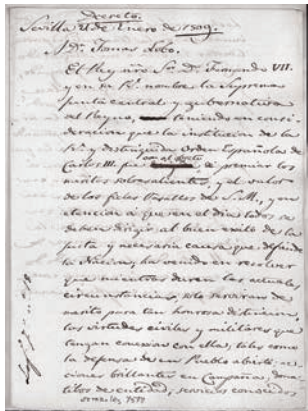 Decreto.
Sevilla 21 de Enero de 1809.
A Dn. Tomas Lobo.
El Rey nro Sr. Dn. Fernando VII.
y en su Rl. nombre la Suprema
Junta central y gubernativa
del Reyno, teniendo en consi-
deracion que la institucion de la
Rl. y distinguida orden Española de
con el objeto
Carlos III. fue de premiar los
meritos sobresalientes, y el valor
de los fieles Vasallos de S.M., y en
atencion à que en el dia todos se
deben dirigir al bien exito de la
justa y necesaria causa que defiende
la Nacion; ha venido en resolver
que mientras duren las actuales
circunstancias, solo serviran de
merito para tan honrosa distincion,
las virtudes civiles y militares que
tengan conexion con ella; tales como
la defensa de un Pueblo abierto, ac-
ciones brillantes en Campaña, dona-
tibos de entidad, servicios conocidos